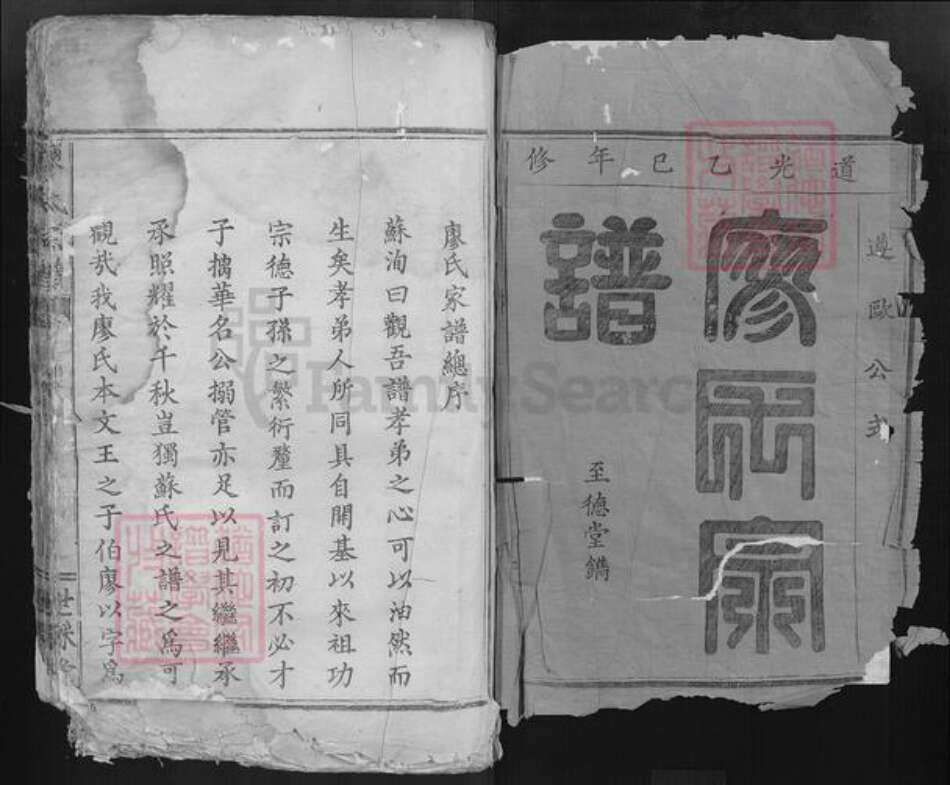 道光乙巳年修
遵歐公式
廖氏家
譜
至德堂鐫
廖氏家譜總序
蘇洵曰觀吾譜孝弟之心可以油然而
生矣孝弟人所同具自開基以來祖功
宗德子孫之繁衍釐而訂之初不必才
子摛華名公搦管亦足以見其繼繼承
承照耀於千秋豈獨蘇氏之譜之為可
觀哉我廖氏本文王之子伯廖以字為
FamilySearch